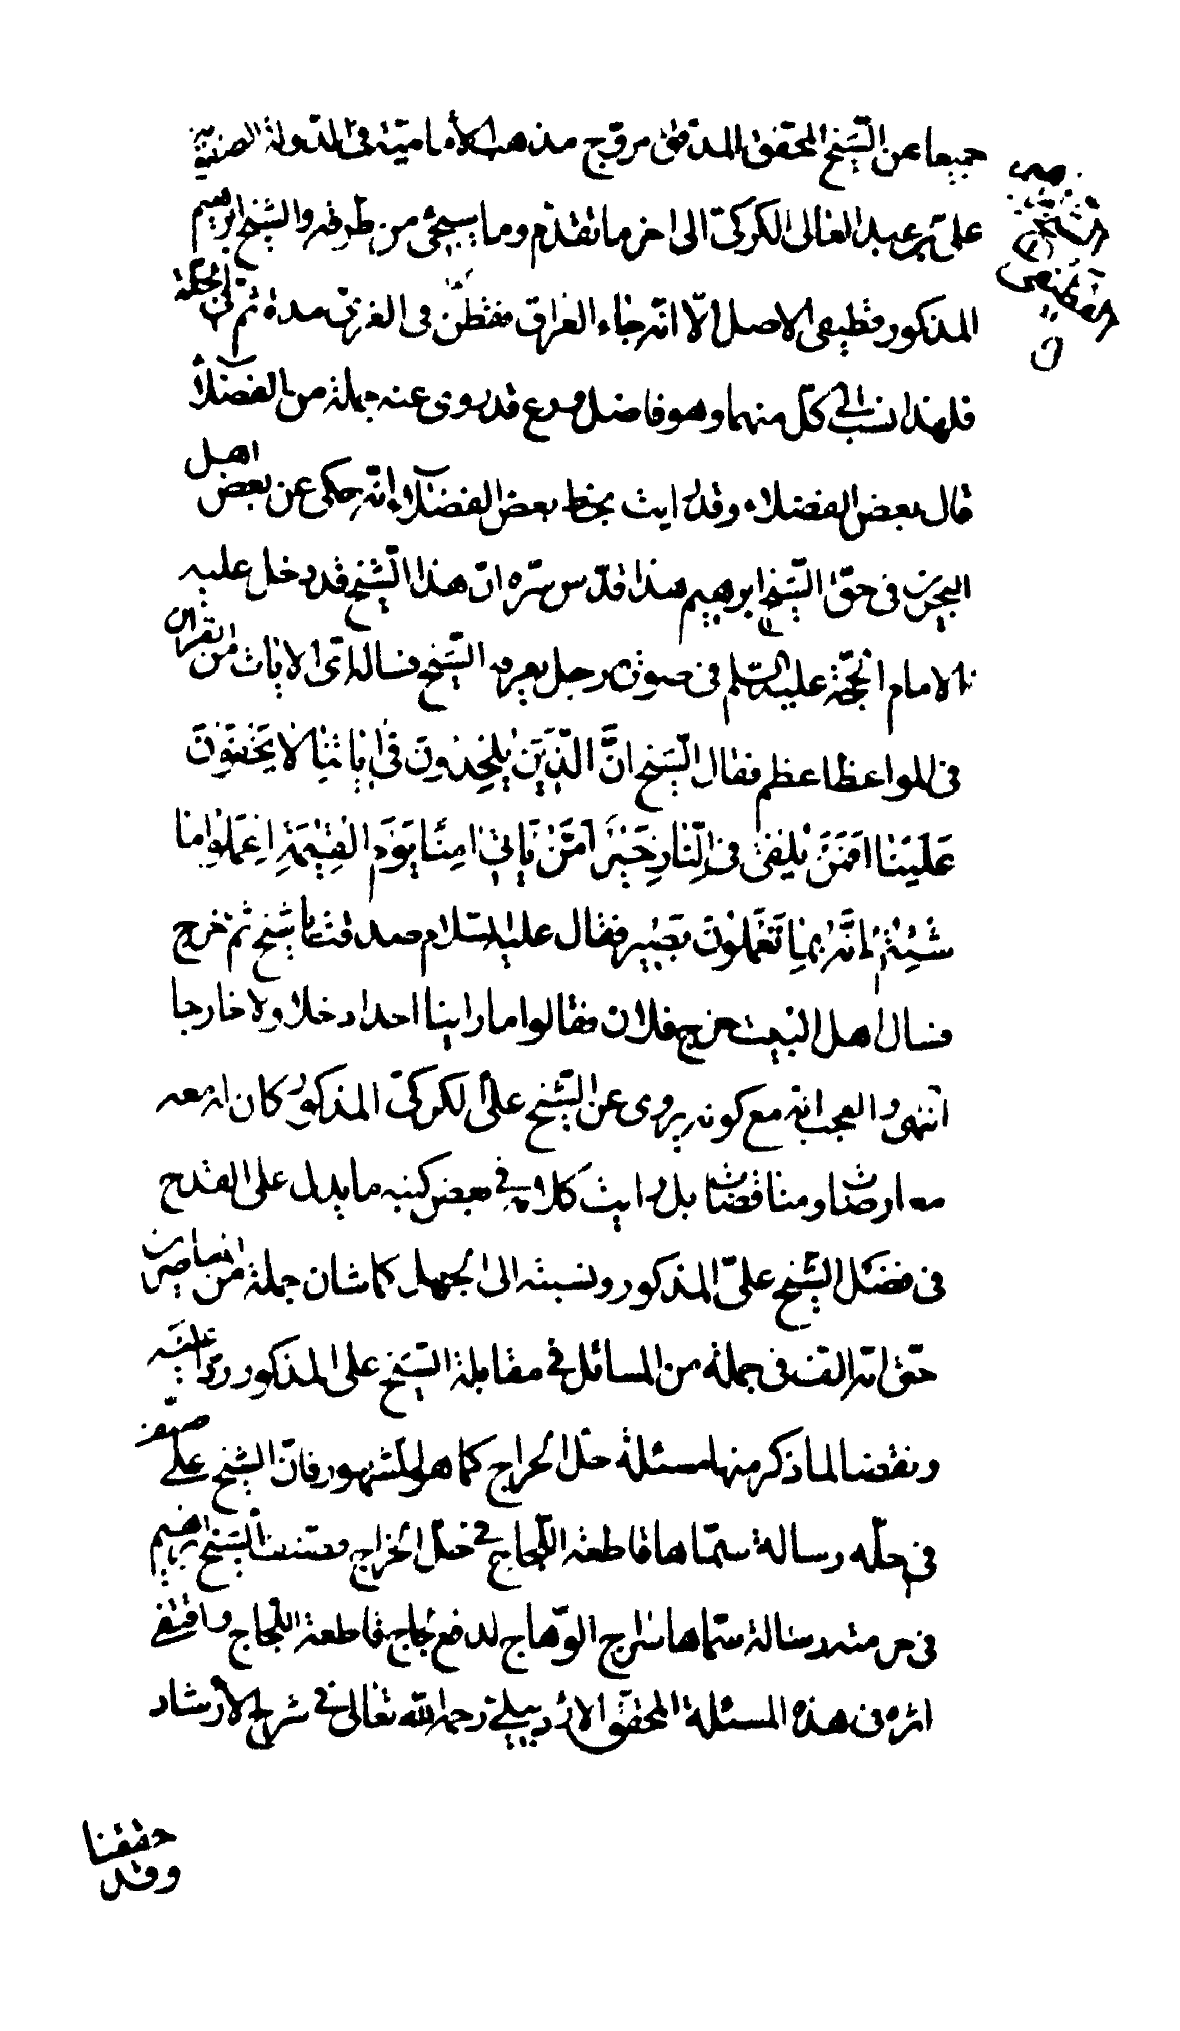 جميعا عن الشيخ المحقق المدقق مروّج مذهب الأمامية في الدولة الصفوية
علي بن عبد العالى الكركى الى اخر ما تقدّم وما سيجئ من طرقه والشيخ ابرهيم
المذكور قطيفى الاصل الّا انّه جاء العراق فقطن فى الغرى مدة ثم فى الحلة
فلهذا نسب الى كلّ منهما وهو فاضل ورع قد روى عنه جملة من الفضلاء
قال بعض الفضلاء وقد رايت بخط بعض الفضلاء انّه حكى عن بعض اهل
البحرين فى حقّ الشيخ ابرهيم هذا قدّس سرّه انّ هذا الشيخ قد دخل عليه
الامام الحجّة عليه السّلم فى صورة رجل يعرفه الشيخ فساله اىّ الايات من القران
فى المواعظ اعظم فقال الشيخ انَّ الّذِينَ يُلحِدُونَ فى اياتِنا لا يَخفَونَ
عَلَينا افَمَن يُلقى فى النّارِ خَيرٌ اَمَّن يَاتى امِنًا يَومَ القِيٰمَةِ اِعمَلُوا ما
شِئتُم اِنَّهُ بِما تَعمَلُونَ بَصِير فقال عليه السّلام صدقت يا شيخ ثمّ خرج
فسال اهل البيت خرج فلان فقالوا ما راينا احدا داخلا ولا خارجا
انتهى والعجب انّه مع كونه يروى عن الشّيخ علىّ الكركىّ المذكور كان له معه
معارضات ومناقضات بل رايت كلامه فى بعض كتبه ما يدل على القدح
فى فضل الشّيخ علىّ المذكور ونسبته الى الجهل كما شان جملة من المعاصرين
حتّى انّه الف فى جملة من المسائل فى مقابلة الشيخ على المذكور ردّا عليه
ونقضا لما ذكر منها مسئلة حلّ الخراج كما هو المشهور فانّ الشيخ على صنّف
فى حلّه رسالة سمّاها قاطعة اللّجاج فى حلّ الخراج فصنّف الشيخ ابرهيم
فى حرمته رسالة سمّاها سراج الوهّاج لدفع لجاج قاطعة اللّجاج واقتفى
اثره فى هذه المسئلة المحقّق الأردبيلى رحمه اللّه تعالى فى شرح الأرشاد
حققنا
وقد